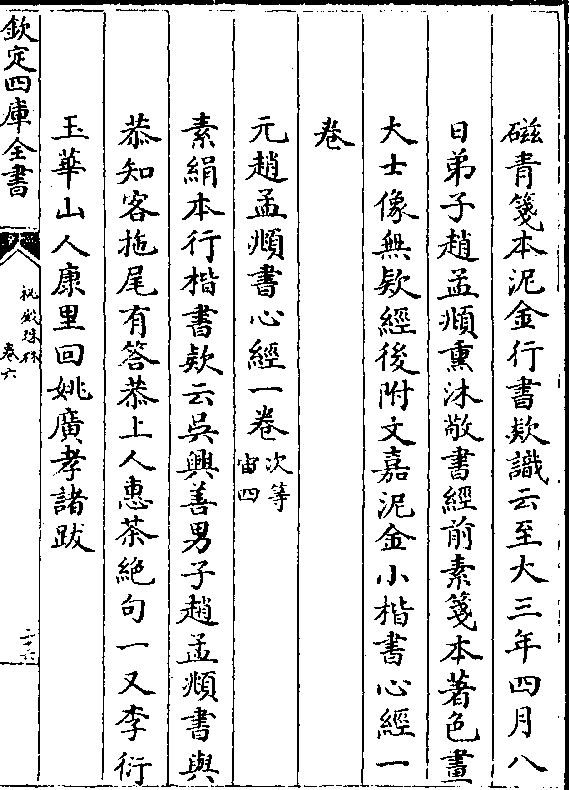 磁青箋本泥金行書欵識云至大三年四月八
日弟子趙孟頫熏沐敬書經前素箋本著色畫
大士像無欵經後附文嘉泥金小楷書心經一
卷
元趙孟頫書心經一卷次等宙四
素絹本行楷書欵云吳興善男子趙孟頫書與
恭知客拖尾有答恭上人惠茶絶句一又李衍
玉華山人康里回姚廣孝諸跋
欽定四庫全書
祕殿珠林
卷六
二十六